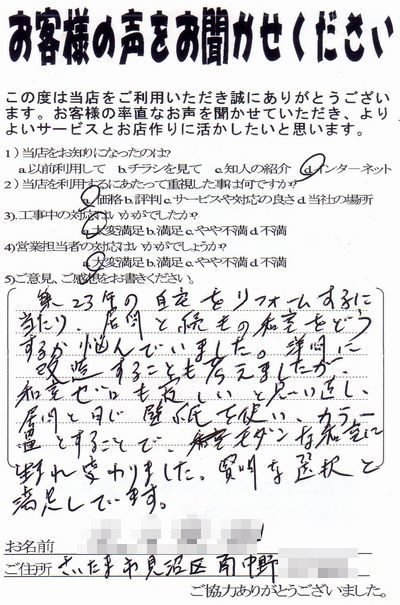 お客様の声をお聞かせください
この度は当店をご利用いただき誠にありがとうござい
ます。お客様の率直なお声を聞かせていただき、より
よいサービスとお店作りに活かしたいと思います。
1)当店をお知りになったのは?
a以前利用して b.チラシを見て c.知人の紹介 d インターネット
2)当店を利用するにあたって重視した事は何ですか?
a価格 b.評判 c.サービスや対応の良さ d 当社の場所
3).工事中の対応はいかがでしたか?
a.大変満足 b.満足 c.やや不満 d 不満
4)営業担当者の対応はいかがでしょうか?
a.大変満足 b.満足 c.やや不満 d 不満
5)ご意見、ご感想をお書きください。
築23年の自宅をリフォームするに
当たり、居間と続きの和室をどう
するか悩んでいました。洋間に
改造することも考えましたが、
和室ゼロも寂しいと思い直し、
居間と同じ壁紙を使い、カラー
畳とすることで、モダンな和室に
生まれ変わりました。賢明な選択と
満足しています。
お名前
ご住所 さいたま市見沼区南中野
ご協力ありがとうございました。